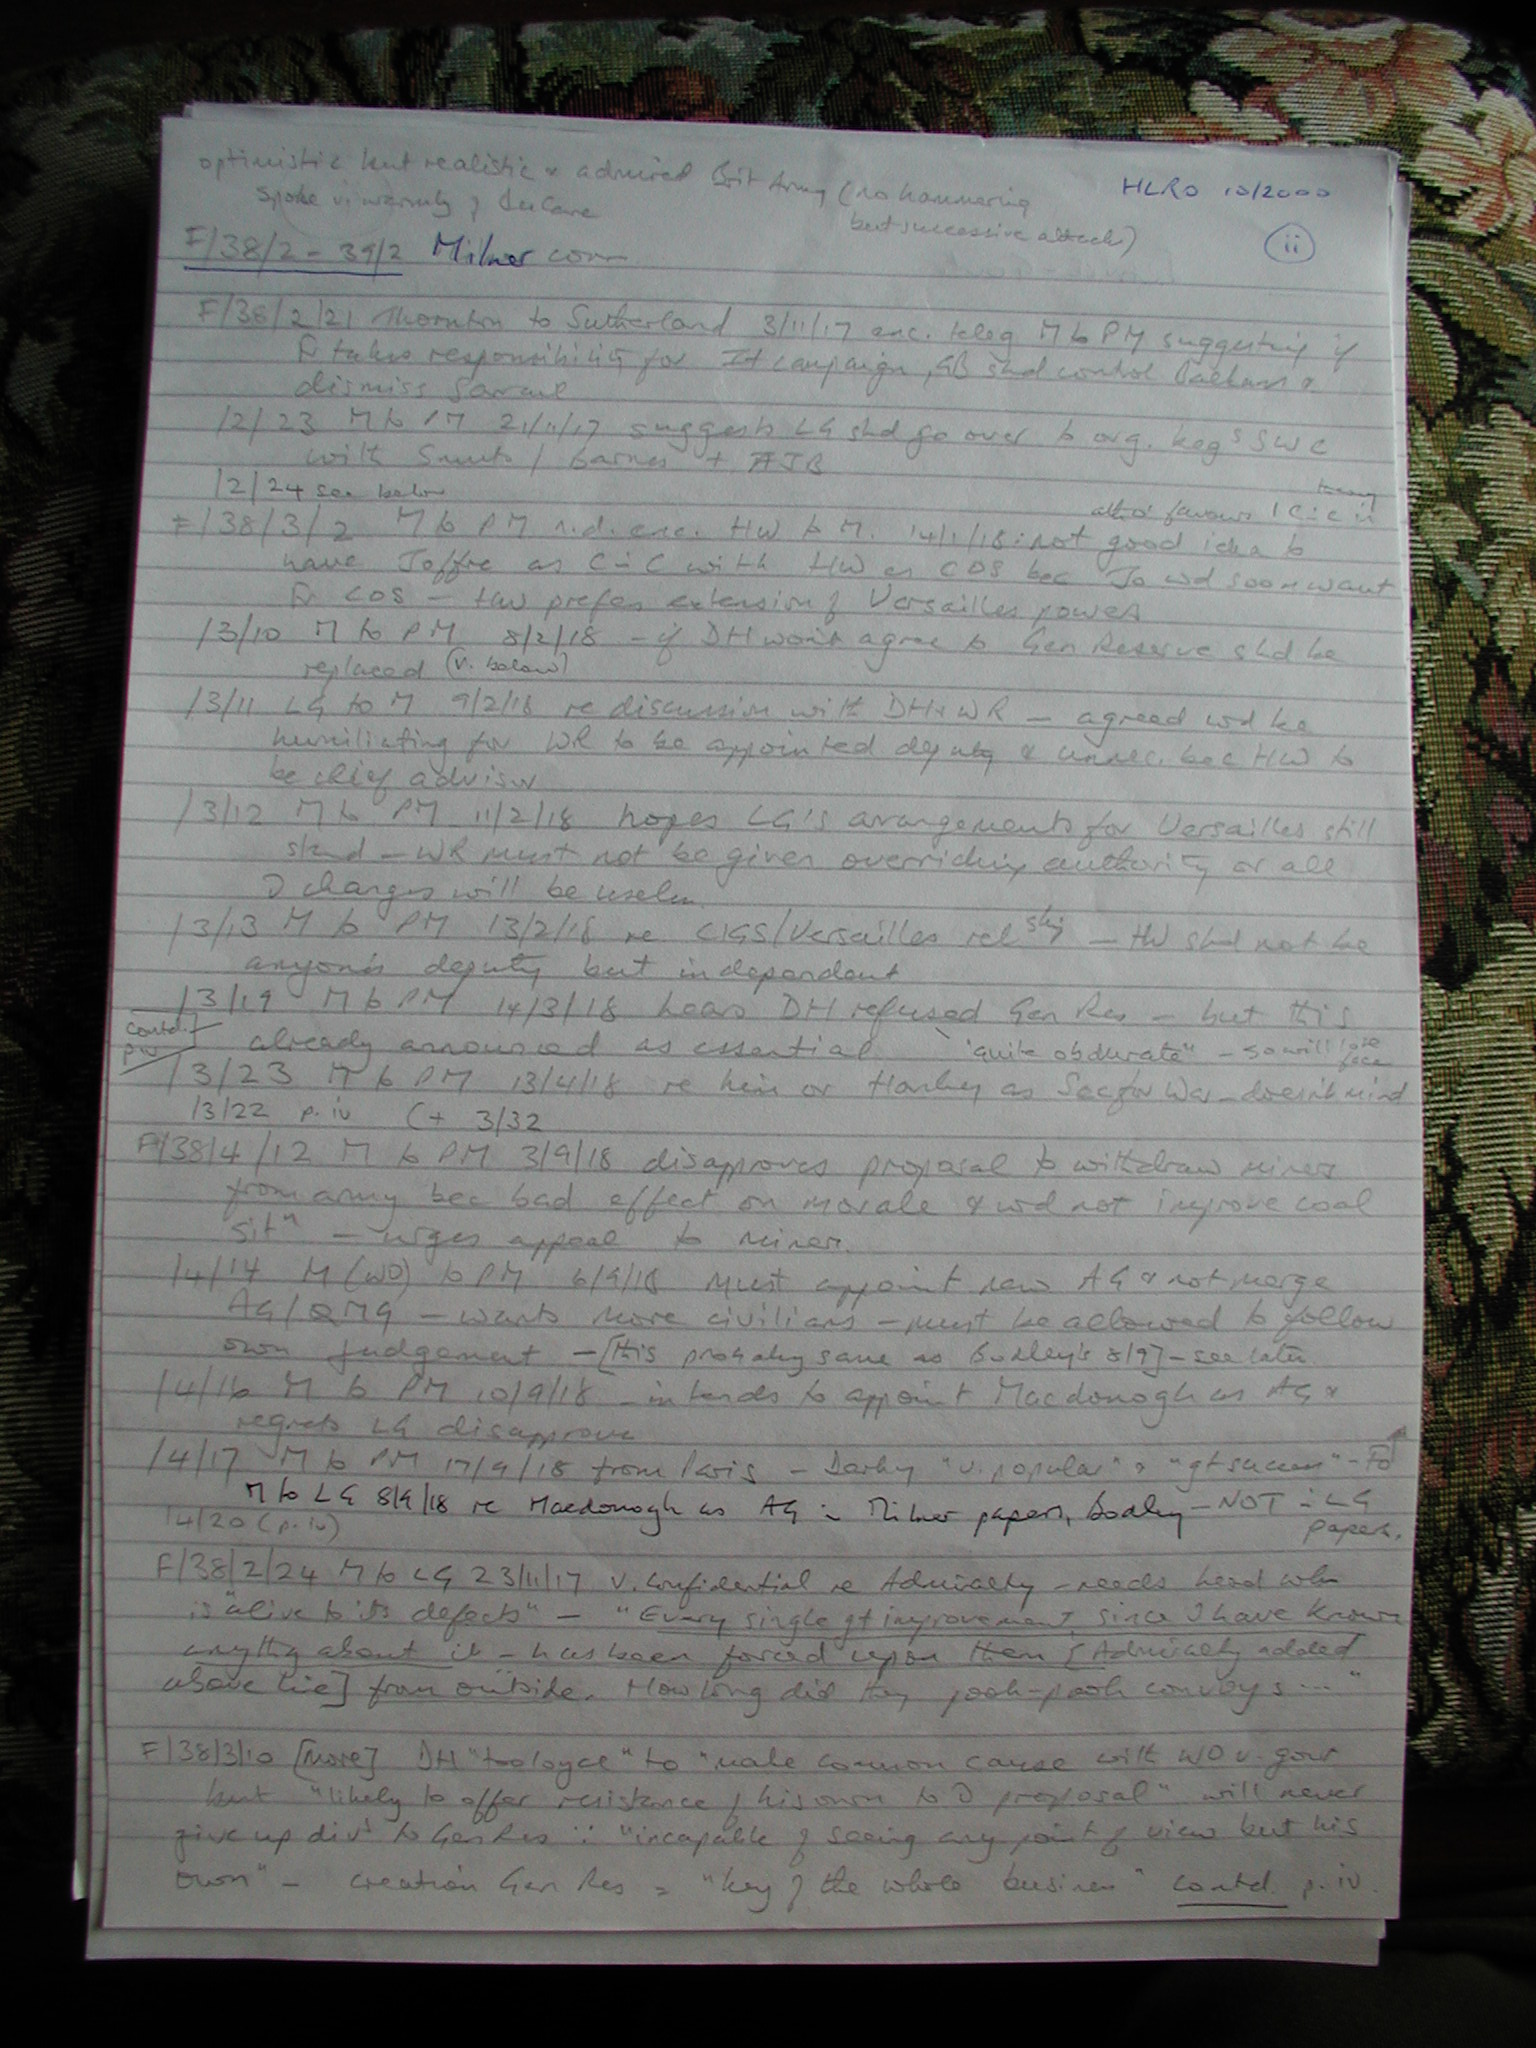 HLRO 10/2000
optimistic but realistic & admired Brit Army (no hammering
but successive attacks)
spoke v. warmly of
ii
F/38/2 - 39/2 Milner corr
F/38/2/21 Thornton to Sutherland 3/11/17 enc. teleg M to PM suggesting if
Fr takes responsibility for It campaign, GB shd control Balkans &
dismiss Sarrail
/2/23 M to PM 21/11/17 suggests LG shd go over to org. SWC
with Smuts / Barnes + AJB
/2/24 see below
altho' favours 1 C-in-C in theory
F/38/3/2 M to PM n.d. enc. HW to M. 14/1/18: not good idea to
have Joffre as C-in-C with HW as COS bec Jo wd soon want
Fr COS - HW prefers extension of Versailles powers
/3/10 M to PM 8/2/18 - if DH won't agree to Gen Reserve shd be
replaced (v. below)
/3/11 LG to M 9/2/18 re discussion with DH & WR - agreed wd be
humiliating for WR to be appointed deputy & unnec. bec HW to
be chief advisor
/3/12 M to PM 11/2/18 hopes LG's arrangements for Versailles still
stand - WR must not be given overriding authority or all
changes will be useless
/3/13 M to PM 13/2/18 re CIGS/Versailles rel ship - HW shd not be
anyone's deputy but independent
/3/19 M to PM 14/3/18 hears DH refused Gen Res - but this
contd. p iv
already announced as essential "quite obdurate" - so will lose face
/3/23 M to PM 13/4/18 re him or Hankey as Sec for War - doesn't mind
/3/22 p. iv (+ 3/32
F/38/4/12 M to PM 3/9/18 disapproves proposal to withdraw miners
from army bec bad effect on morale & wd not improve coal
sitn - urges appeal to miners.
/4/14 M (WO) to PM 6/9/18 must appoint new AG & not merge
AG/QMG - wants more civilians - must be allowed to follow
own judgement - [this probably same as Bodley's 8/9] - see later
/4/16 M to PM 10/9/18 - intends to appoint Macdonogh as AG &
regrets LG disapproves
/4/17 M to PM 17/9/18 from Paris - Derby "v. popular" & "gt success" -
M to LG 8/9/18 re Macdonogh as AG in Milner papers, Bodley - NOT in LG
papers.
/4/20 (p. iv)
F/38/2/24 M to LG 23/11/17 v. confidential re Admiralty - needs head who
is "alive to its defects" - "Every single gt improvement, since I have known
anythg about it - has been forced upon them [Admiralty added
above line] from outside. How long did they pooh-pooh convoys ..."
F/38/3/10 [more] DH "too loyal" to "make common cause with WO v. govt
but "likely to offer resistance of his own to proposal" will never
give up divs to Gen Res ∵ "incapable of seeing any point of view but his
own" - creation Gen Res = "key of the whole business" contd. p. iv.